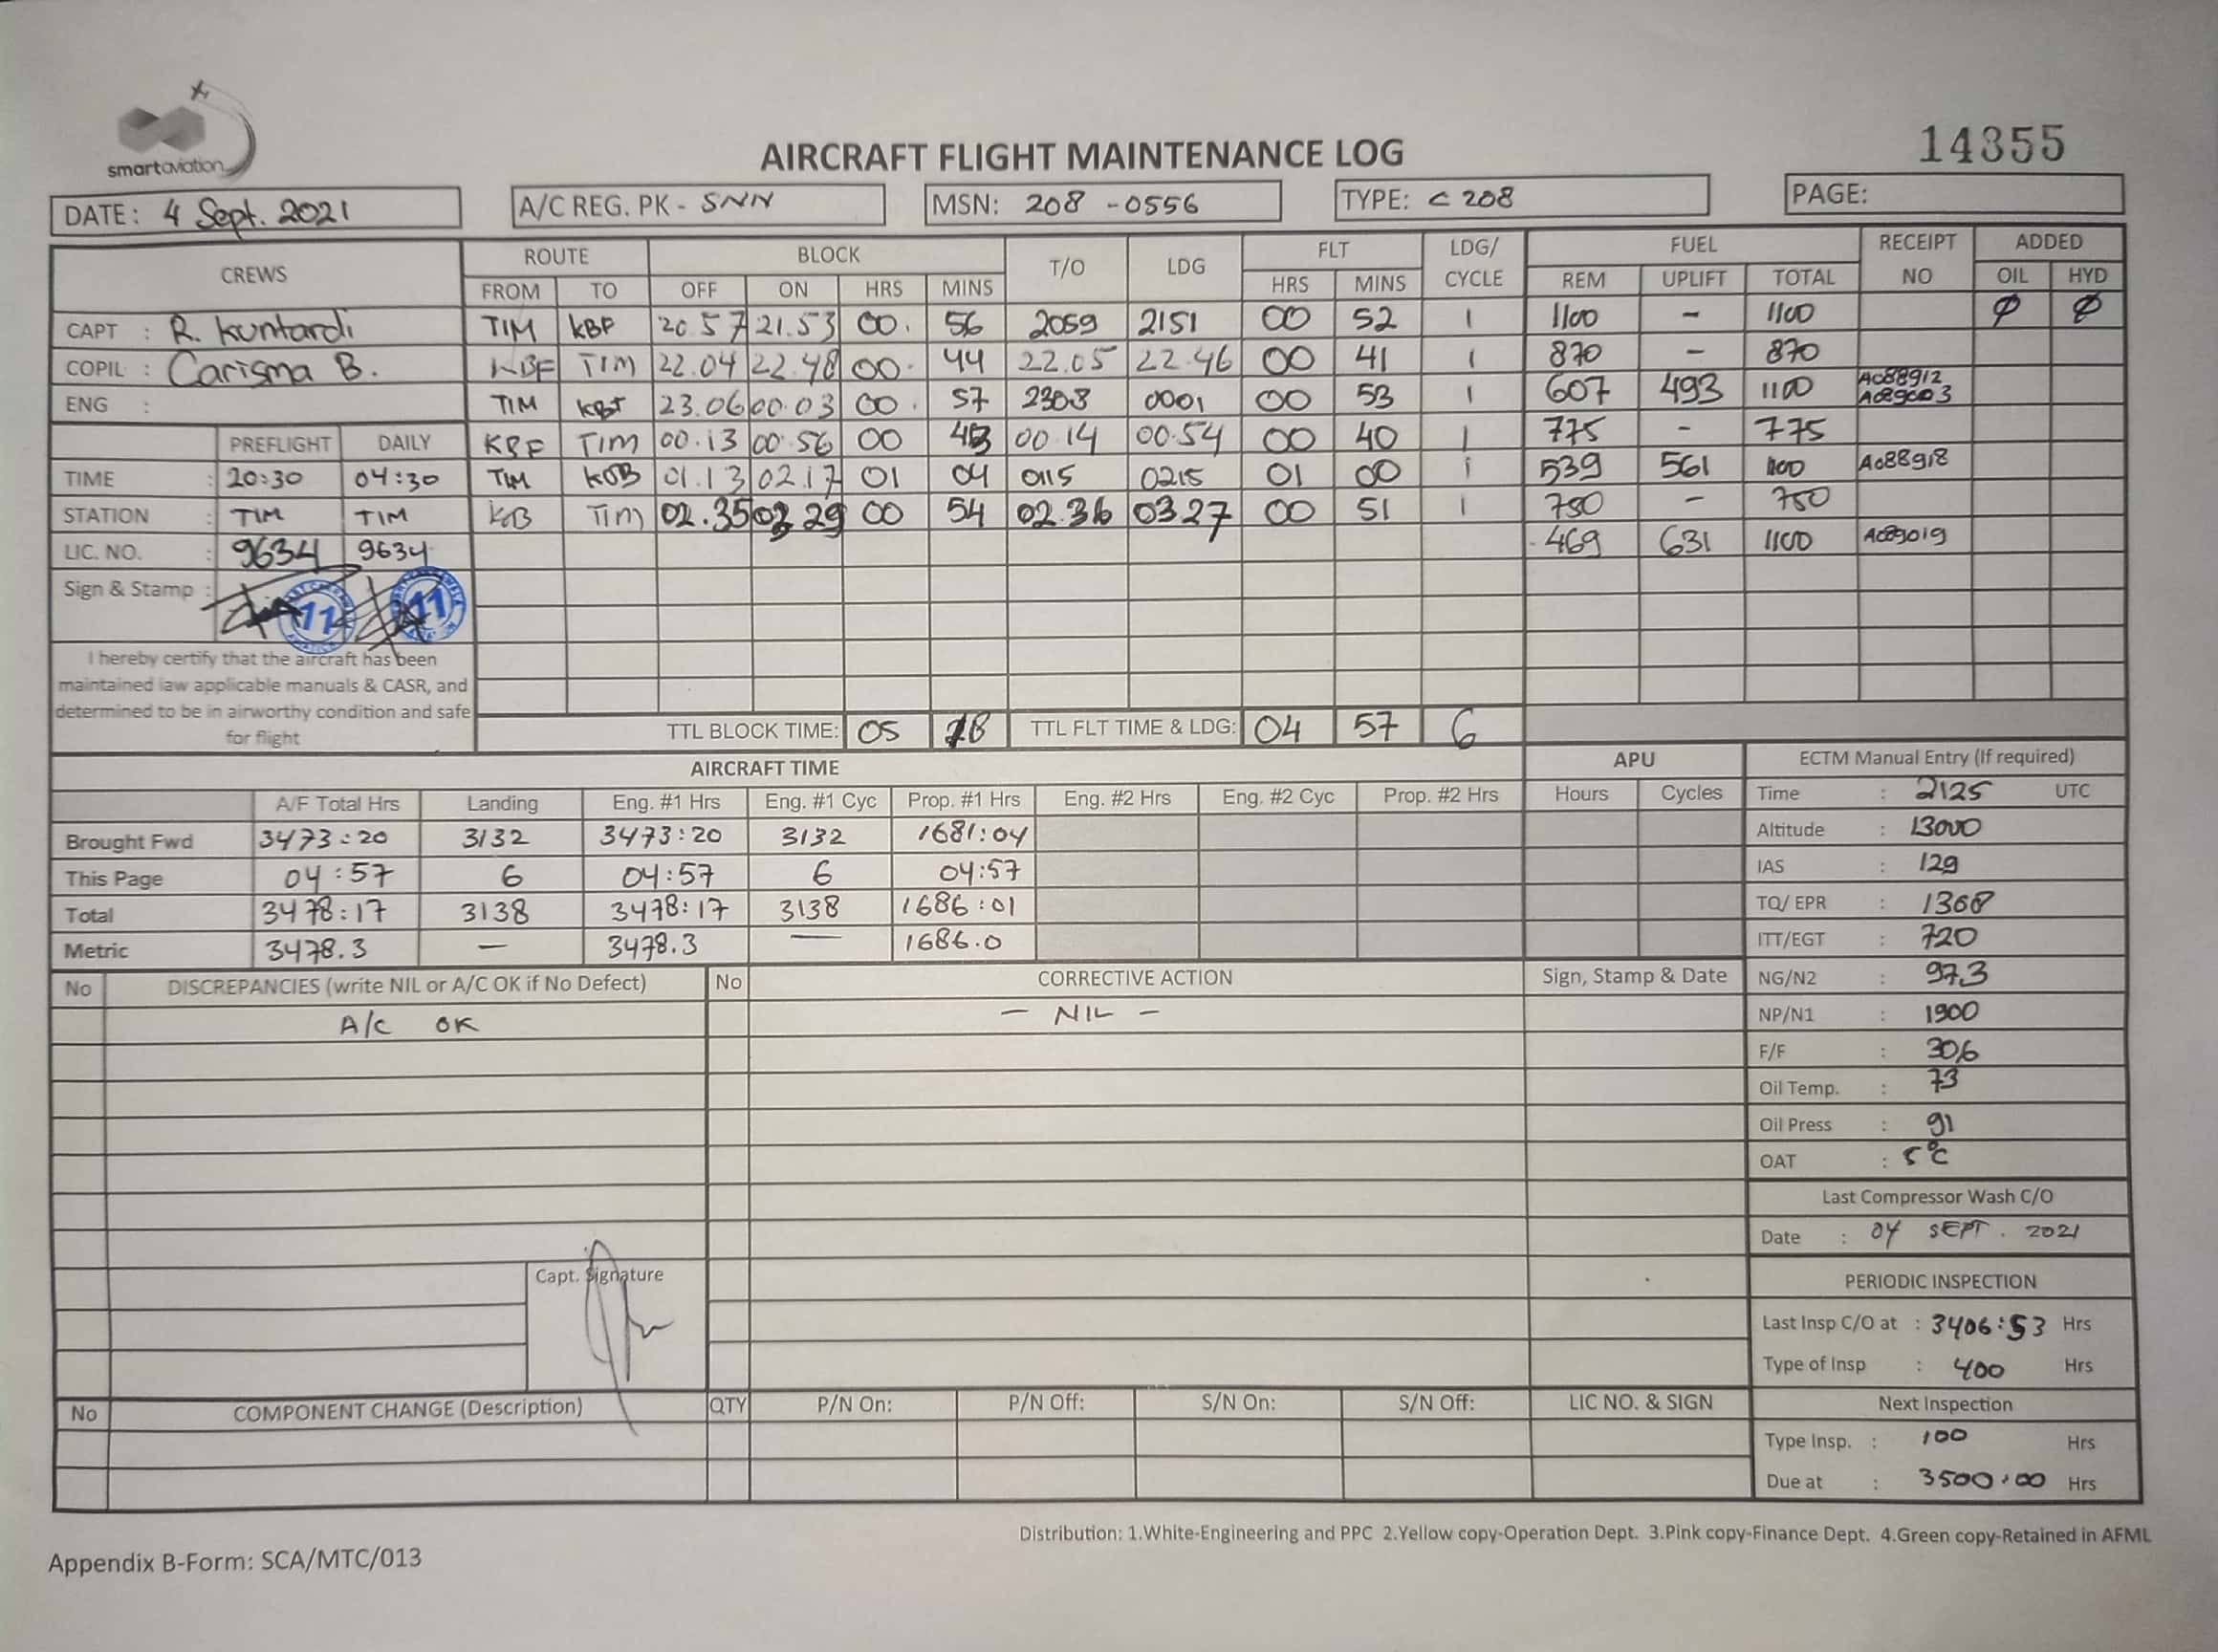 smartaviation
14355
AIRCRAFT FLIGHT MAINTENANCE LOG
DATE: 4 Sept. 2021 A/C REG. PK - SNN MSN: 208 -0556 TYPE: C 208 PAGE:
CREWS ROUTE BLOCK T/O LDG FLT LDG/ CYCLE FUEL RECEIPT NO ADDED
FROM TO OFF ON HRS MINS HRS MINS REM UPLIFT TOTAL OIL HYD
CAPT : R. Kuntardi TIM KBF 20.57 21.53 00. 56 2059 2151 00 52 1 1100 - 1100 Ø Ø
COPIL : Carisma B. KBF TIM 22.04 22.48 00. 44 22.05 22.46 00 41 1 870 - 870
ENG : TIM KBF 23.06 00.03 00. 57 2308 0001 00 53 1 607 493 1100 A088912
PREFLIGHT DAILY KBF TIM 00.13 00.56 00 43 00.14 00.54 00 40 1 775 - 775
TIME : 20:30 04:30 TIM KOB 01.13 02.17 01 04 0115 0215 01 00 1 539 561 1100 A088918
STATION : TIM TIM KOB TIM 02.35 03.29 00 54 02.36 03.27 00 51 1 750 - 750
LIC. NO. : 9634 9634 469 631 1100 A089019
Sign & Stamp : 11 11
I hereby certify that the aircraft has been
maintained iaw applicable manuals & CASR, and
determined to be in airworthy condition and safe
for flight
TTL BLOCK TIME: 05 18 TTL FLT TIME & LDG: 04 57 6
AIRCRAFT TIME APU ECTM Manual Entry (If required)
A/F Total Hrs Landing Eng. #1 Hrs Eng. #1 Cyc Prop. #1 Hrs Eng. #2 Hrs Eng. #2 Cyc Prop. #2 Hrs Hours Cycles Time : 2125 UTC
Brought Fwd 3473:20 3132 3473:20 3132 1681:04 Altitude : 13000
This Page 04:57 6 04:57 6 04:57 IAS : 129
Total 3478:17 3138 3478:17 3138 1686:01 TQ/ EPR : 1368
Metric 3478.3 — 3478.3 — 1686.0 ITT/EGT : 720
No DISCREPANCIES (write NIL or A/C OK if No Defect) No CORRECTIVE ACTION Sign, Stamp & Date NG/N2 : 97.3
A/C OK - NIL - NP/N1 : 1900
F/F : 306
Oil Temp. : 73
Oil Press : 91
OAT : 5°C
Last Compressor Wash C/O
Date : 04 SEPT . 2021
Capt. Signature
PERIODIC INSPECTION
Last Insp C/O at : 3406:53 Hrs
Type of Insp : 400 Hrs
No COMPONENT CHANGE (Description) QTY P/N On: P/N Off: S/N On: S/N Off: LIC NO. & SIGN Next Inspection
Type Insp. : 100 Hrs
Due at : 3500:00 Hrs
Distribution: 1.White-Engineering and PPC 2.Yellow copy-Operation Dept. 3.Pink copy-Finance Dept. 4.Green copy-Retained in AFML
Appendix B-Form: SCA/MTC/013